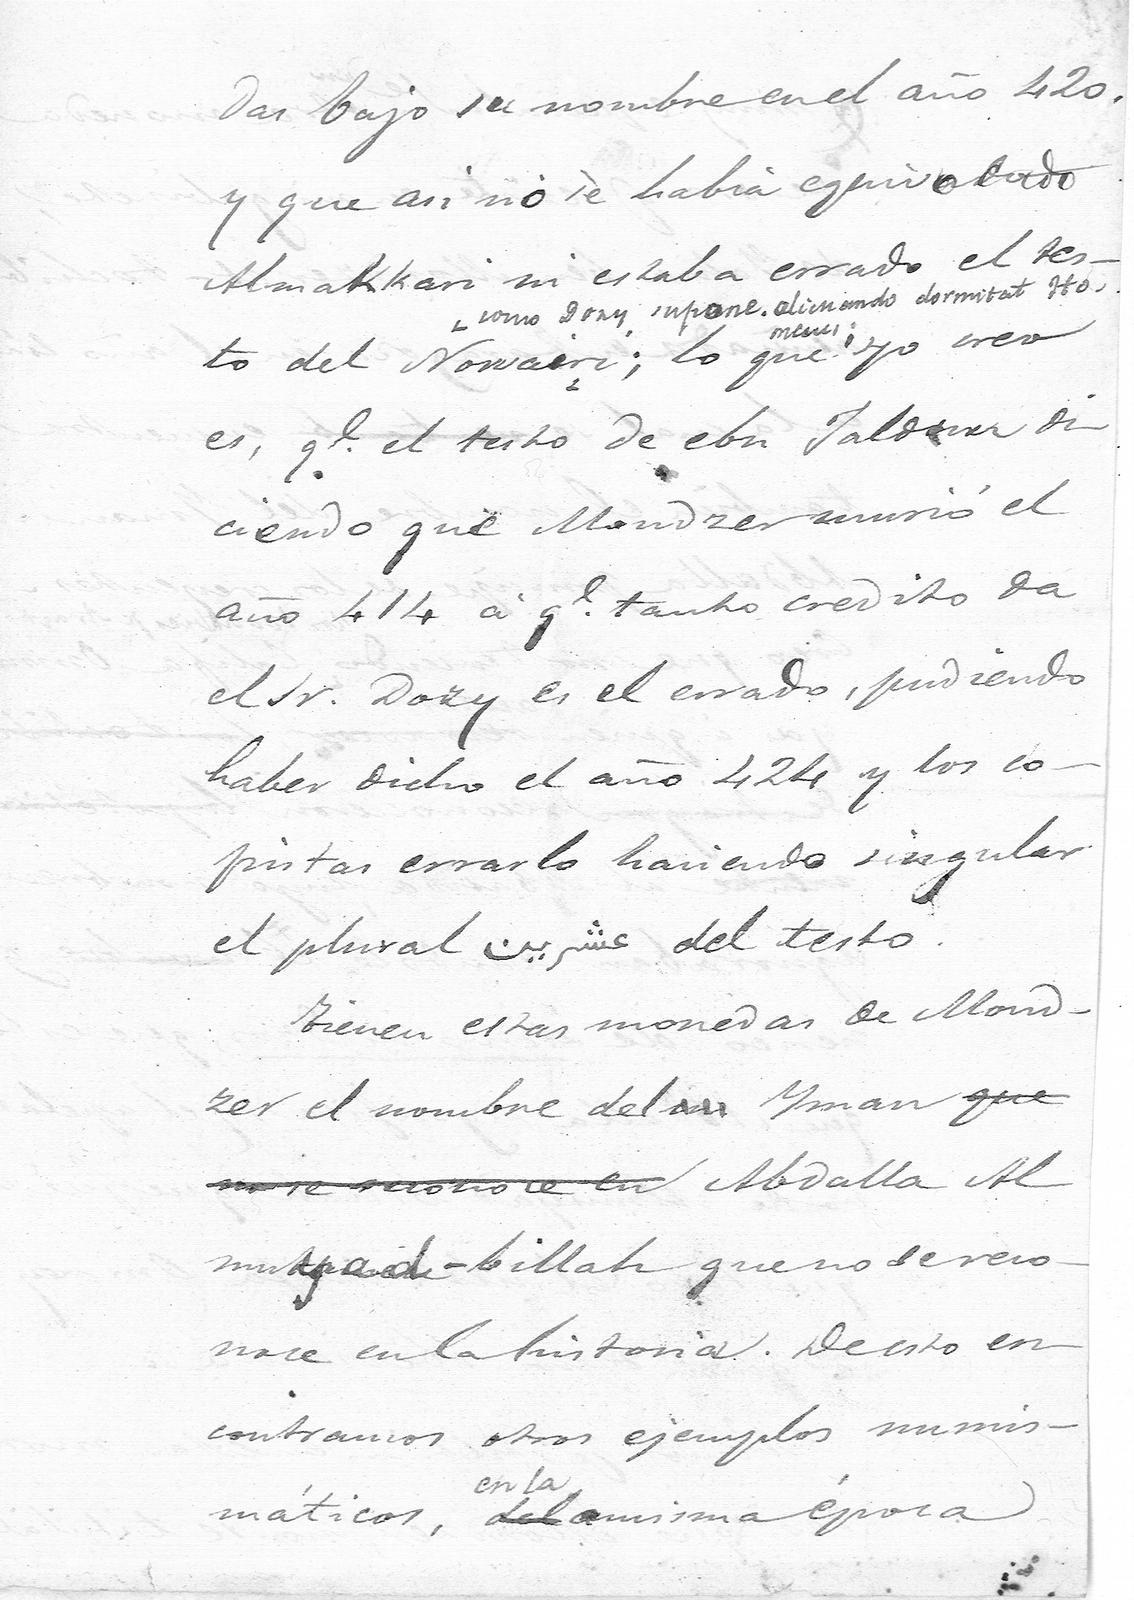 das bajo su nombre en el año 420.
y que asi no se habia equivocado
Almakkari ni estaba errado el tes-
como Dozy supone. alicuando dormitat Ho-
merus;
to del Nowairi; lo que yo creo
es, q.e el testo de ebn Jaldun di-
ciendo que Mondzer murió el
año 414 á q.e tanto credito da
el Sr. Dozy es el errado, pudiendo
haber dicho el año 424 y los co-
pistas errarlo haciendo singular
el plural عشرين del testo.
Tienen estas monedas de Mond-
zer el nombre del Yman que
no se reconoce en Abdalla Al
muyad-billah que no se reco-
noce en la historia. De esto en
contramos otros ejemplos numis-
en la
máticos, de la misma época